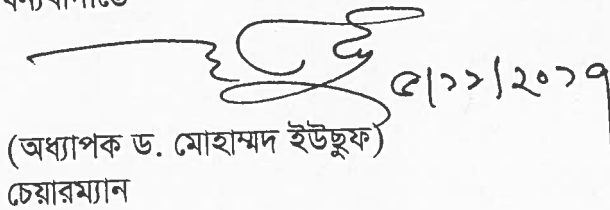 ধন্যবাদান্তে
৫/১১/২০১৭
(অধ্যাপক ড. মোহাম্মদ ইউছুফ)
চেয়ারম্যান